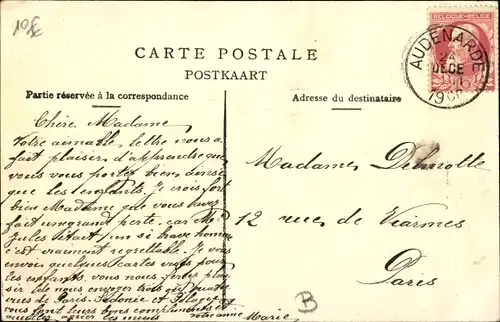 10fc
BELGIQUE-BELGIË
AUDENARDE
24
DECE
CARTE POSTALE
POSTKAART
Partie réservée à la correspondance
Adresse du destinataire
Chère Madame
Votre aimable lettre nous a
fait plaisir d'apprendre que
vous vous portez bien ainsi
que les enfants. Je crois fort
bien Madame que vous avez
fait un grand perte, car Mr
Jules était un si brave homme
c'est vraiment regrettable. Je vous
envois quelques cartes vues pour
les enfants, vous nous ferez plai
sir de nous envoyer trois ou quatre
vues de Paris. Sidonie et
vous font leurs bons compliments et
Marie
Madame
12 rue de Viarmes
Paris
B